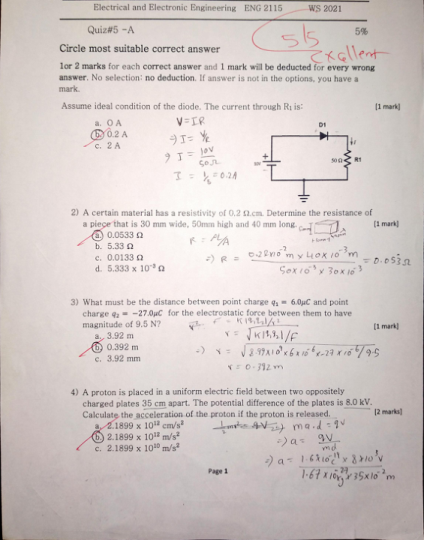 Electrical and Electronic Engineering ENG 2115 WS 2021
Quiz#5 -A 5%
5/5
Excellent
Circle most suitable correct answer
1or 2 marks for each correct answer and 1 mark will be deducted for every wrong
answer. No selection: no deduction. If answer is not in the options, you have a
mark.
Assume ideal condition of the diode. The current through R₁ is: [1 mark]
a. 0 A
b. 0.2 A
c. 2 A
V = IR
⇒ I = V/R
⇒ I = 10V/50Ω
I = 1/5 = 0.2A
D1
50Ω R1
2) A certain material has a resistivity of 0.2 Ω.cm. Determine the resistance of
a piece that is 30 mm wide, 50mm high and 40 mm long. [1 mark]
a. 0.0533 Ω
b. 5.33 Ω
c. 0.0133 Ω
d. 5.333 x 10⁻⁵ Ω
R = ρL/A
⇒ R =
50x10⁻³ x 30x10⁻³
= 0.053Ω
3) What must be the distance between point charge q₁ = 6.0μC and point
charge q₂ = −27.0μC for the electrostatic force between them to have
magnitude of 9.5 N? [1 mark]
a. 3.92 m
b. 0.392 m
c. 3.92 mm
r = √K|q₁q₂|/F
⇒ r = √8.99x10⁹x6x10⁻⁶x-27x10⁻⁶/9.5
r = 0.392m
4) A proton is placed in a uniform electric field between two oppositely
charged plates 35 cm apart. The potential difference of the plates is 8.0 kV.
Calculate the acceleration of the proton if the proton is released. [2 marks]
a. 2.1899 x 10¹² cm/s²
b. 2.1899 x 10¹² m/s²
c. 2.1899 x 10¹⁰ m/s²
ma.d = qV
⇒ a = qV/md
⇒ a = 1.6x10⁻¹⁹ x 8x10³V
1.67x10⁻²⁷ x 35x10⁻² m
Page 1